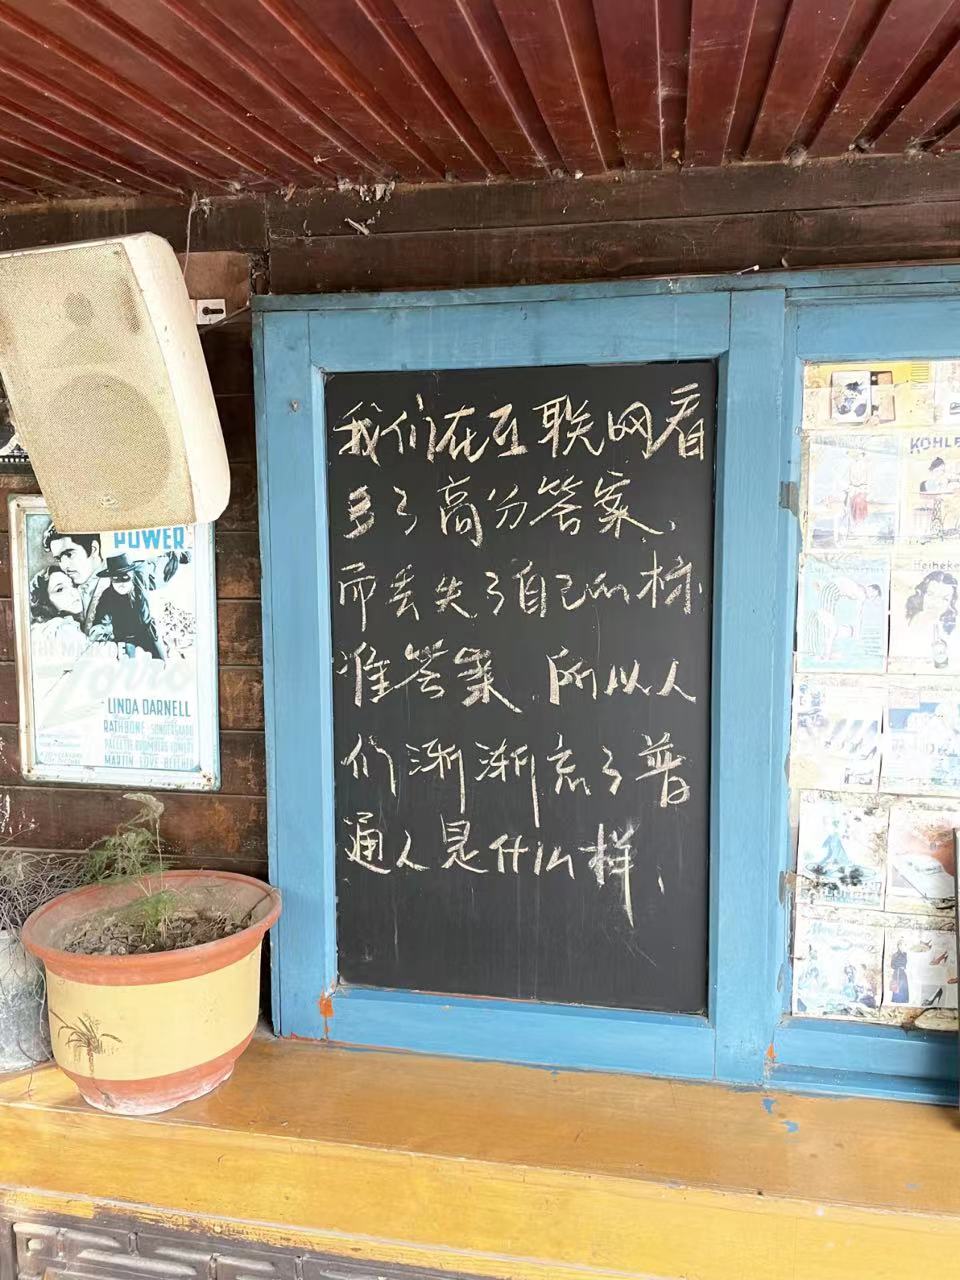 我们在互联网看
多了高分答案、
而丢失了自己的标
准答案、所以人
们渐渐忘了普
通人是什么样、
POWER
THE MARK OF
Zorro
LINDA DARNELL
RATHBONE · SONDERGAARD
MARTIN · LOVE · BEECHER
KOHLE
Heineke